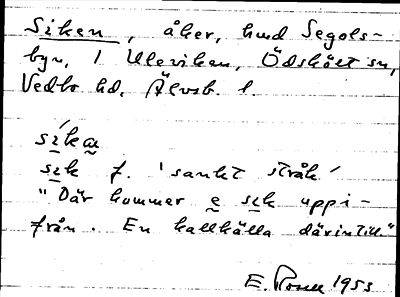 Siken, åker, hmd Segols-
byn, 1 Uleviken, Ödskölt sn,
Vedbo hd, Älvsb. l.
síka
sik f. 'sankt stråk'
"Där kommer e sik uppi-
från. En kallkälla därintill."
E. 1953